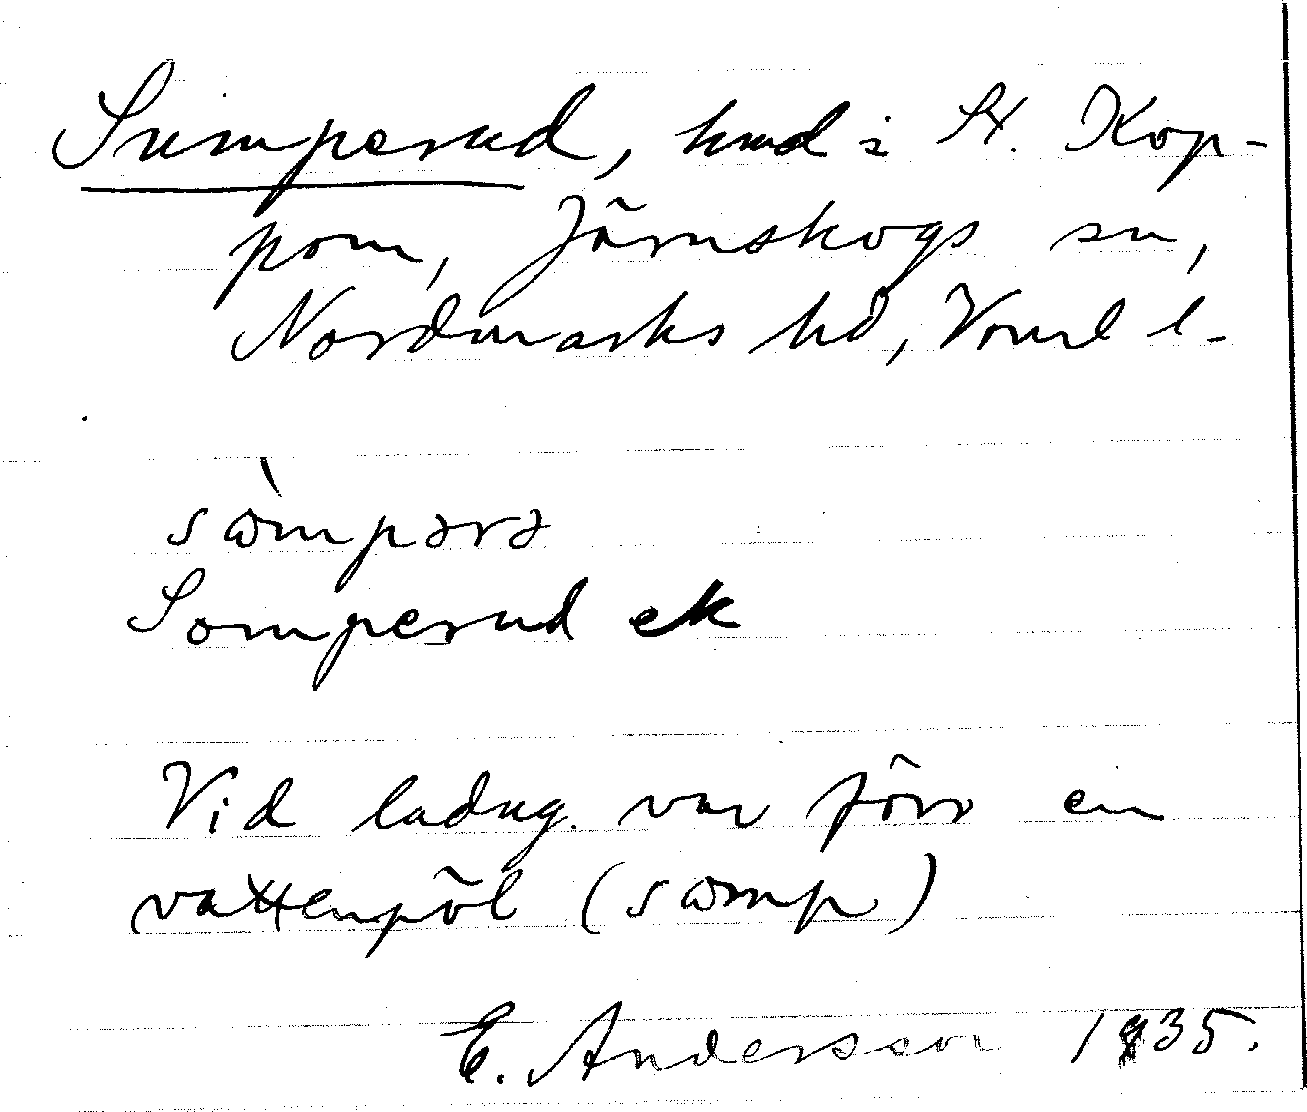 Sumperud, hmd i St. Kop-
pom, Järnskogs sn,
Nordmarks hd, Vrml l.
sὼmpərə
Somperud ek
Vid ladug. var förr en
vattenpöl (sωmp)
E. Andersson 1935.